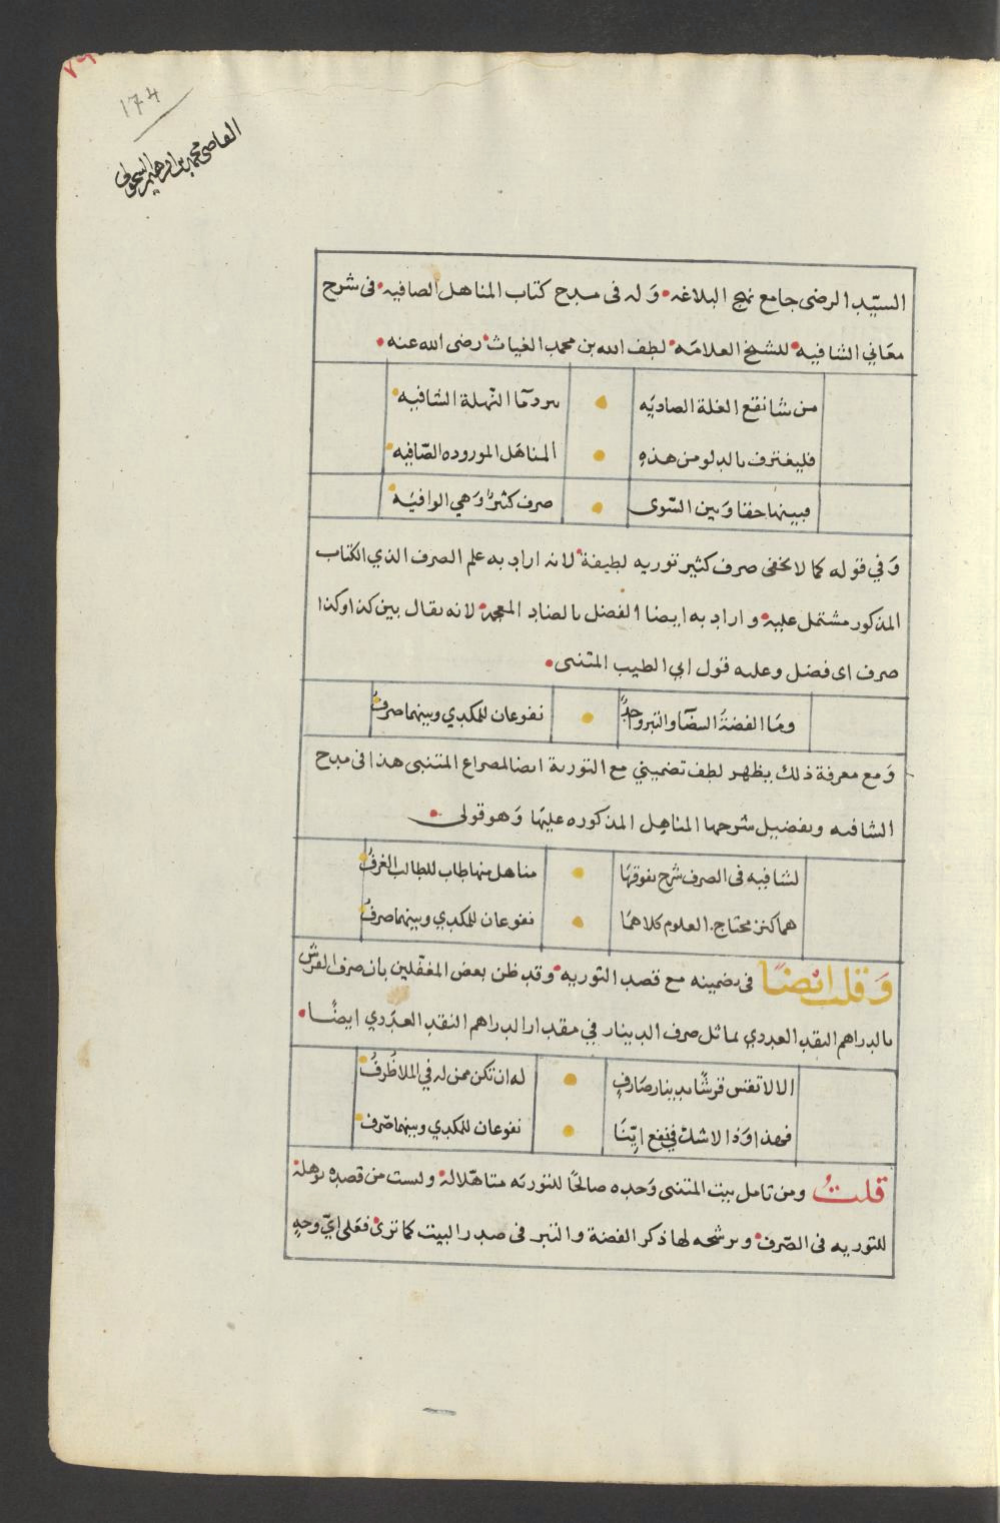 ١٧٤
القاضي محمد بن ابرهيم السحولي
السيّد الرضى جامع نهج البلاغه وَله فى مدح كتاب المناهل الصافيه فى شرح
معَاني الشافيه للشيخ العلامّه لطف الله بن محمد الغياث رضى الله عنه
من شا نقع الغلة الصاديَه سردمَا النّهلة الشافيه
فليغترف بالدلو من هذهِ المناهَل الموروده الصّافيه
فبينها حقا وَبين السّوى صرف كثيرٌ وَهي الوافيَه
وَفي قوله كما لا يخفى صرف كثير توريه لطيفة لانه اراد به علم الصرف الذي الكتاب
المذكور مشتمل عليه واراد به ايضا الفضل بالضاد المعجمه لانه يقال بين كذا وكذا
صرف اى فضل وعليه قول ابي الطيب المتنبى
ومَا الفضةُ البيضَا والتبر واحدٌ نفوعان للمكدي وبينهما صرفُ
وَمع معرفة ذلك يظهر لطف تضميني مع التورية ايضا لمصراع المتنبى هذا فى مدح
الشافيه وتفضيل شرحها المناهل المذكوره عليهَا وَهو قولى
لشافيه فى الصرف شرح يفوقهَا مناهل منها طاب للطالب الغرفُ
هما كنز محتاج العلوم كلاهمَا نفوعان للمكدي وبينهما صرفُ
وَقلت ايضًا فى تضمينه مع قصد التوريه وقد ظن بعض المغفّلين بان صرف القرش
بالدراهم النقد العددي يماثل صرف الدينار في مقدار الدراهم النقد العدَدي ايضًا
الا لا تقس قرشًا بدينار صَارفٍ له ان تكن ممن له في الملا ظُرفُ
فهذا وَذا لا شك فى نفع ايّنَا نفوعان للمكدي وبينهما صَرف
قلتُ ومن تامل بيت المتنبى وَحده صالحًا للتوريَه متاهّلا لهَا وليست من قصده لوهلة
للتوريه فى الصّرف وترشحه لها ذكر الفضة والتبر فى صدر البيت كما ترى فعَلى ايّ وجهٍ